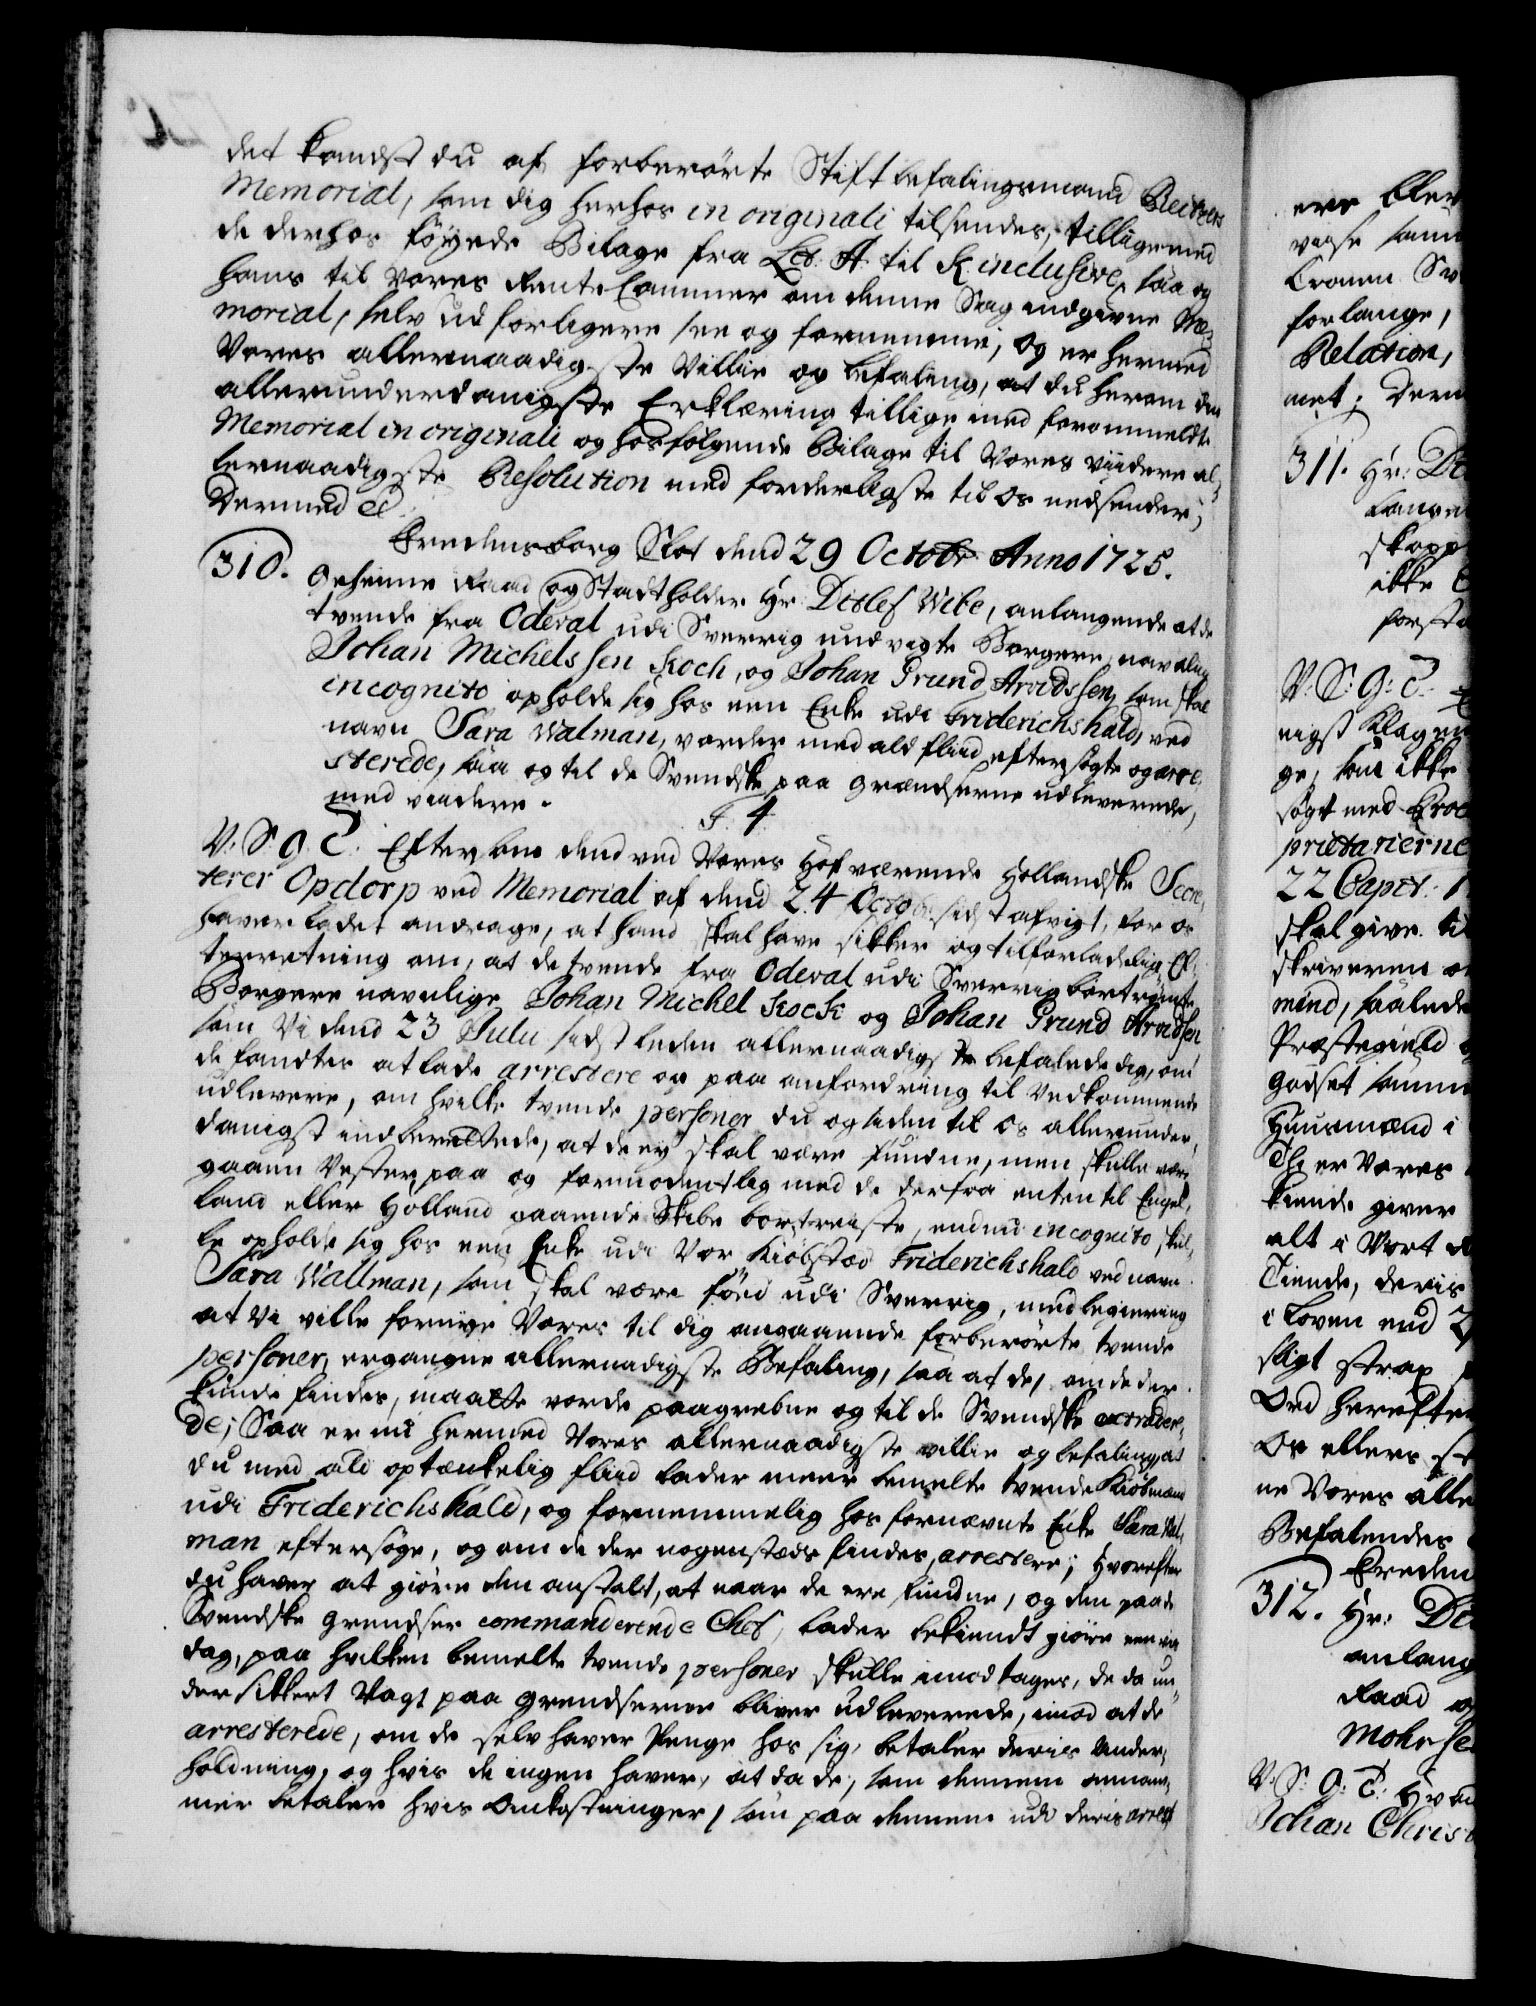 det kandst du af forberørte Stiftbefalingsmand Reitzers
Memorial, som dig herhos in originali tilsendes, tilligemed
de derhos föÿede Bilage fra Lit. A. til K. inclusive, saa og
hans til Vores Rente Cammer om denne Sag indgivne Me-
morial, selv udforligere see og fornemme, Og er hermed
Vores allernaadigste Villie og befaling, at du herom din
allerunderdanigste Erklæring tillige med forommeldte
Memorial in originali og hosfølgende Bilage til Vores viidere al-
lernaadigste Resolution med forderligste til Os nedsender;
Dermed &c.
Fredensborg Slot dend 29 Octobr Anno 1725.
310. Geheime Raad og Stadtholder Hr: Ditlef Wibe, anlangende at de
tvende fra Odeval udi Sverrig undvigte Borgere, navnlig
Johan Michelssen Koch, og Johan Grund Arvidssen, som skal
incognito opholde sig hos een Enke udi Friderichshald, ved
navn Sara Walman, vorder med ald fliid eftersøgte og arre-
sterede, saa og til de Svendske paa Grændserne udleverede,
med viidere.
T. 4.
V. S. G. T. Eftersom dend ved Vores Hof værende Hollandske Secre-
terer Opdorp ved Memorial af dend 24 Octobr. sidst afvigt, for os
haver ladet andrage, at hand skal have sikker og tilforladelig Ef-
terretning om, at de tvende fra Odeval udi Sverrig bortrømte
Borgere navnlige Johan Michel Kock og Johan Grund Arvidsen
som Vi dend 23 Julii sidstleden allernaadigste befalede dig, om
de fandtes at lade arrestere og paa anfordring til Vedkommende
udlevere, om hvilke tvende personer du og siden til Os allerunder-
danigst indberettede, at de ey skal være fundne, men skulle være
gaaen Vester paa og formodentlig med de derfra enten til Engel-
land eller Holland gaaende Skibe bortreiste, endnu incognito skul-
le opholde sig hos een Enke udi Vor Kiøbsted Friderichshald ved navn
Sara Wallman, som skal være fød udi Sverrig, med begiering
at Vi ville fornye Vores til dig angaaende forberørte tvende
personer, ergangne allernaadigste Befaling, saa at de, om de der
kunde findes, maatte vorde paagrebne og til de Svendske extradere-
de; Saa er nu hermed Vores allernaadigste villie og befaling, at
du med ald optænkelig fliid lader meer bemelte tvende Kiøbmænd
udi Friderichshald, og fornemmelig hos fornævnte Enke Sara Wal-
man eftersøge, og om de der nogenstæds findes, arrestere; Hvorefter
du haver at giøre den anstalt, at naar de ere fundne, og den paa de
Svendske Grendser commanderende Chef, lader bekiendt giøre een vis
dag, paa hvilken bemelte tvende personer skulle imodtages, de da un-
der sikkert Vagt paa Grendserne bliver udleverede, imod at de
arresterede, om de selv haver Penge hos sig, betaler deris Under-
holdning, og hvis de ingen haver, at da de, som dennem annam-
mer betaler hvis Omkostninger, som paa dennem udi deris arrest
ere blev
Cronen
forlange,
Relation,
met; Derm
311. Hr: Di
ikke
V: S: G: T:
nigst Klagen
ge, som ikke
søgt med Proc
prietarierne
22 Capit:
skal give til
skriveren
mænd, saalede
Præstegield
Godset
Huusmænd i
Thi er Vores
kiende giver
alt i Vort
Tiende, deris
i Loven end
sligt strax
Ord herefter
Os ellers
ne Vores alle
Befalendes
Freden
312. Hr: Di
anlang
Raad og
Mohrse
V: S: G: T: Hvad
Johan Christ